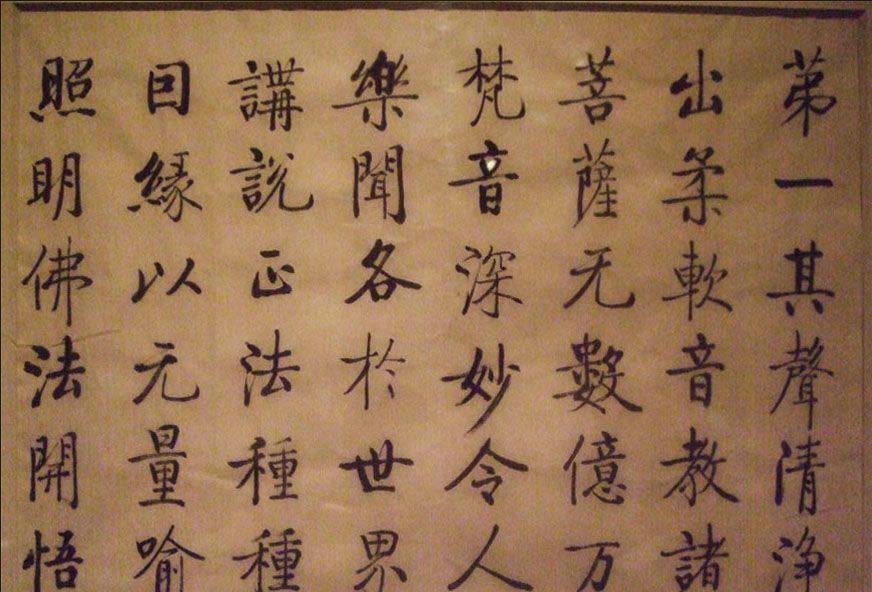 苐一其聲清浄
出柔軟音教諸
菩薩无數億万
梵音深妙令人
樂聞各於世界
講說正法種種
因緣以无量喻
照明佛法開悟